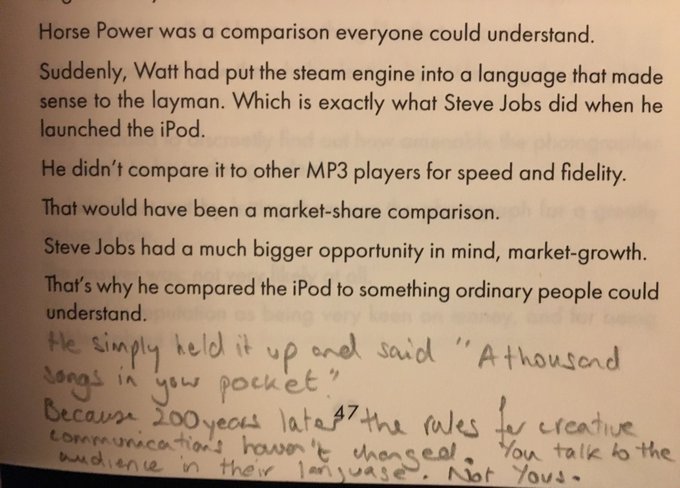 Horse Power was a comparison everyone could understand.
Suddenly, Watt had put the steam engine into a language that made
sense to the layman. Which is exactly what Steve Jobs did when he
launched the iPod.
He didn't compare it to other MP3 players for speed and fidelity.
That would have been a market-share comparison.
Steve Jobs had a much bigger opportunity in mind, market-growth.
That's why he compared the iPod to something ordinary people could
understand.
He simply held it up and said "A thousand
songs in your pocket."
47
Because 200 years later the rules for creative
communications haven't changed. You talk to the
audience in their language. Not Yours.